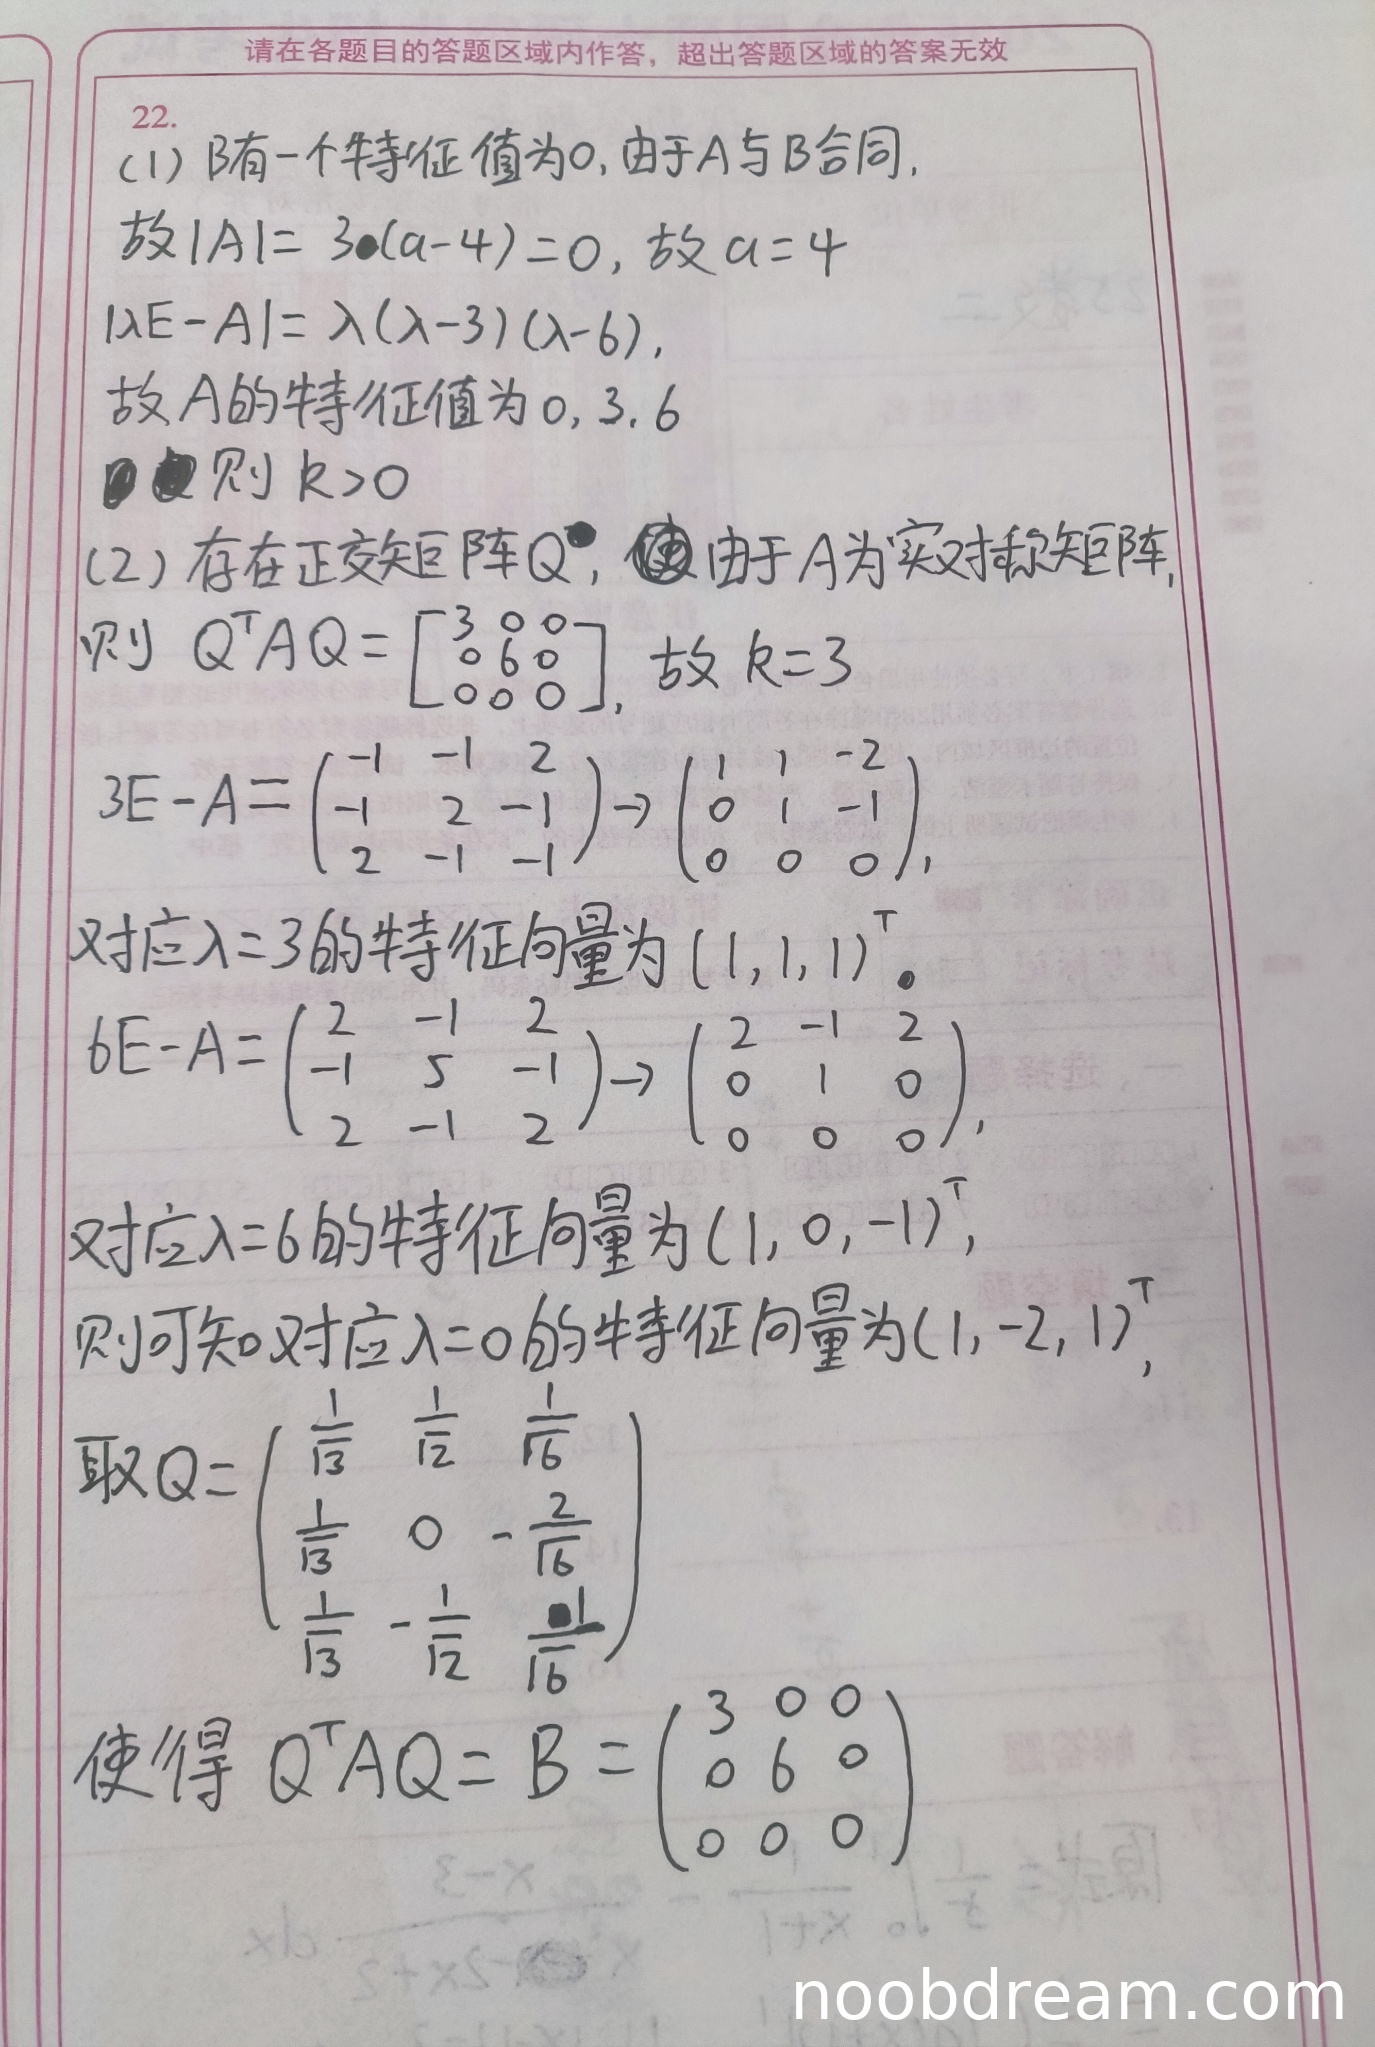 请在各题目的答题区域内作答，超出答题区域的答案无效
22.
(1) B有一个特征值为0, 由于A与B合同,
故|A|= 3·(a-4) = 0, 故 a=4
|λE-A|= λ(λ-3)(λ-6),
故A的特征值为0, 3. 6
则 k>0
(2) 存在正交矩阵Q, 由于A为实对称矩阵,
则 QᵀAQ = [3 0 0
0 6 0
0 0 0], 故 k=3
3E-A = (-1 -1 2
-1 2 -1
2 -1 -1) → (1 1 -2
0 1 -1
0 0 0),
对应λ=3的特征向量为 (1, 1, 1)ᵀ.
6E-A = (2 -1 2
-1 5 -1
2 -1 2) → (2 -1 2
0 1 0
0 0 0),
对应λ=6的特征向量为 (1, 0, -1)ᵀ,
则可知对应λ=0的特征向量为(1, -2, 1)ᵀ,
取Q = (1/√3 1/√2 1/√6
1/√3 0 -2/√6
1/√3 -1/√2 1/√6)
使得 QᵀAQ = B = (3 0 0
0 6 0
0 0 0)
noobdream.com